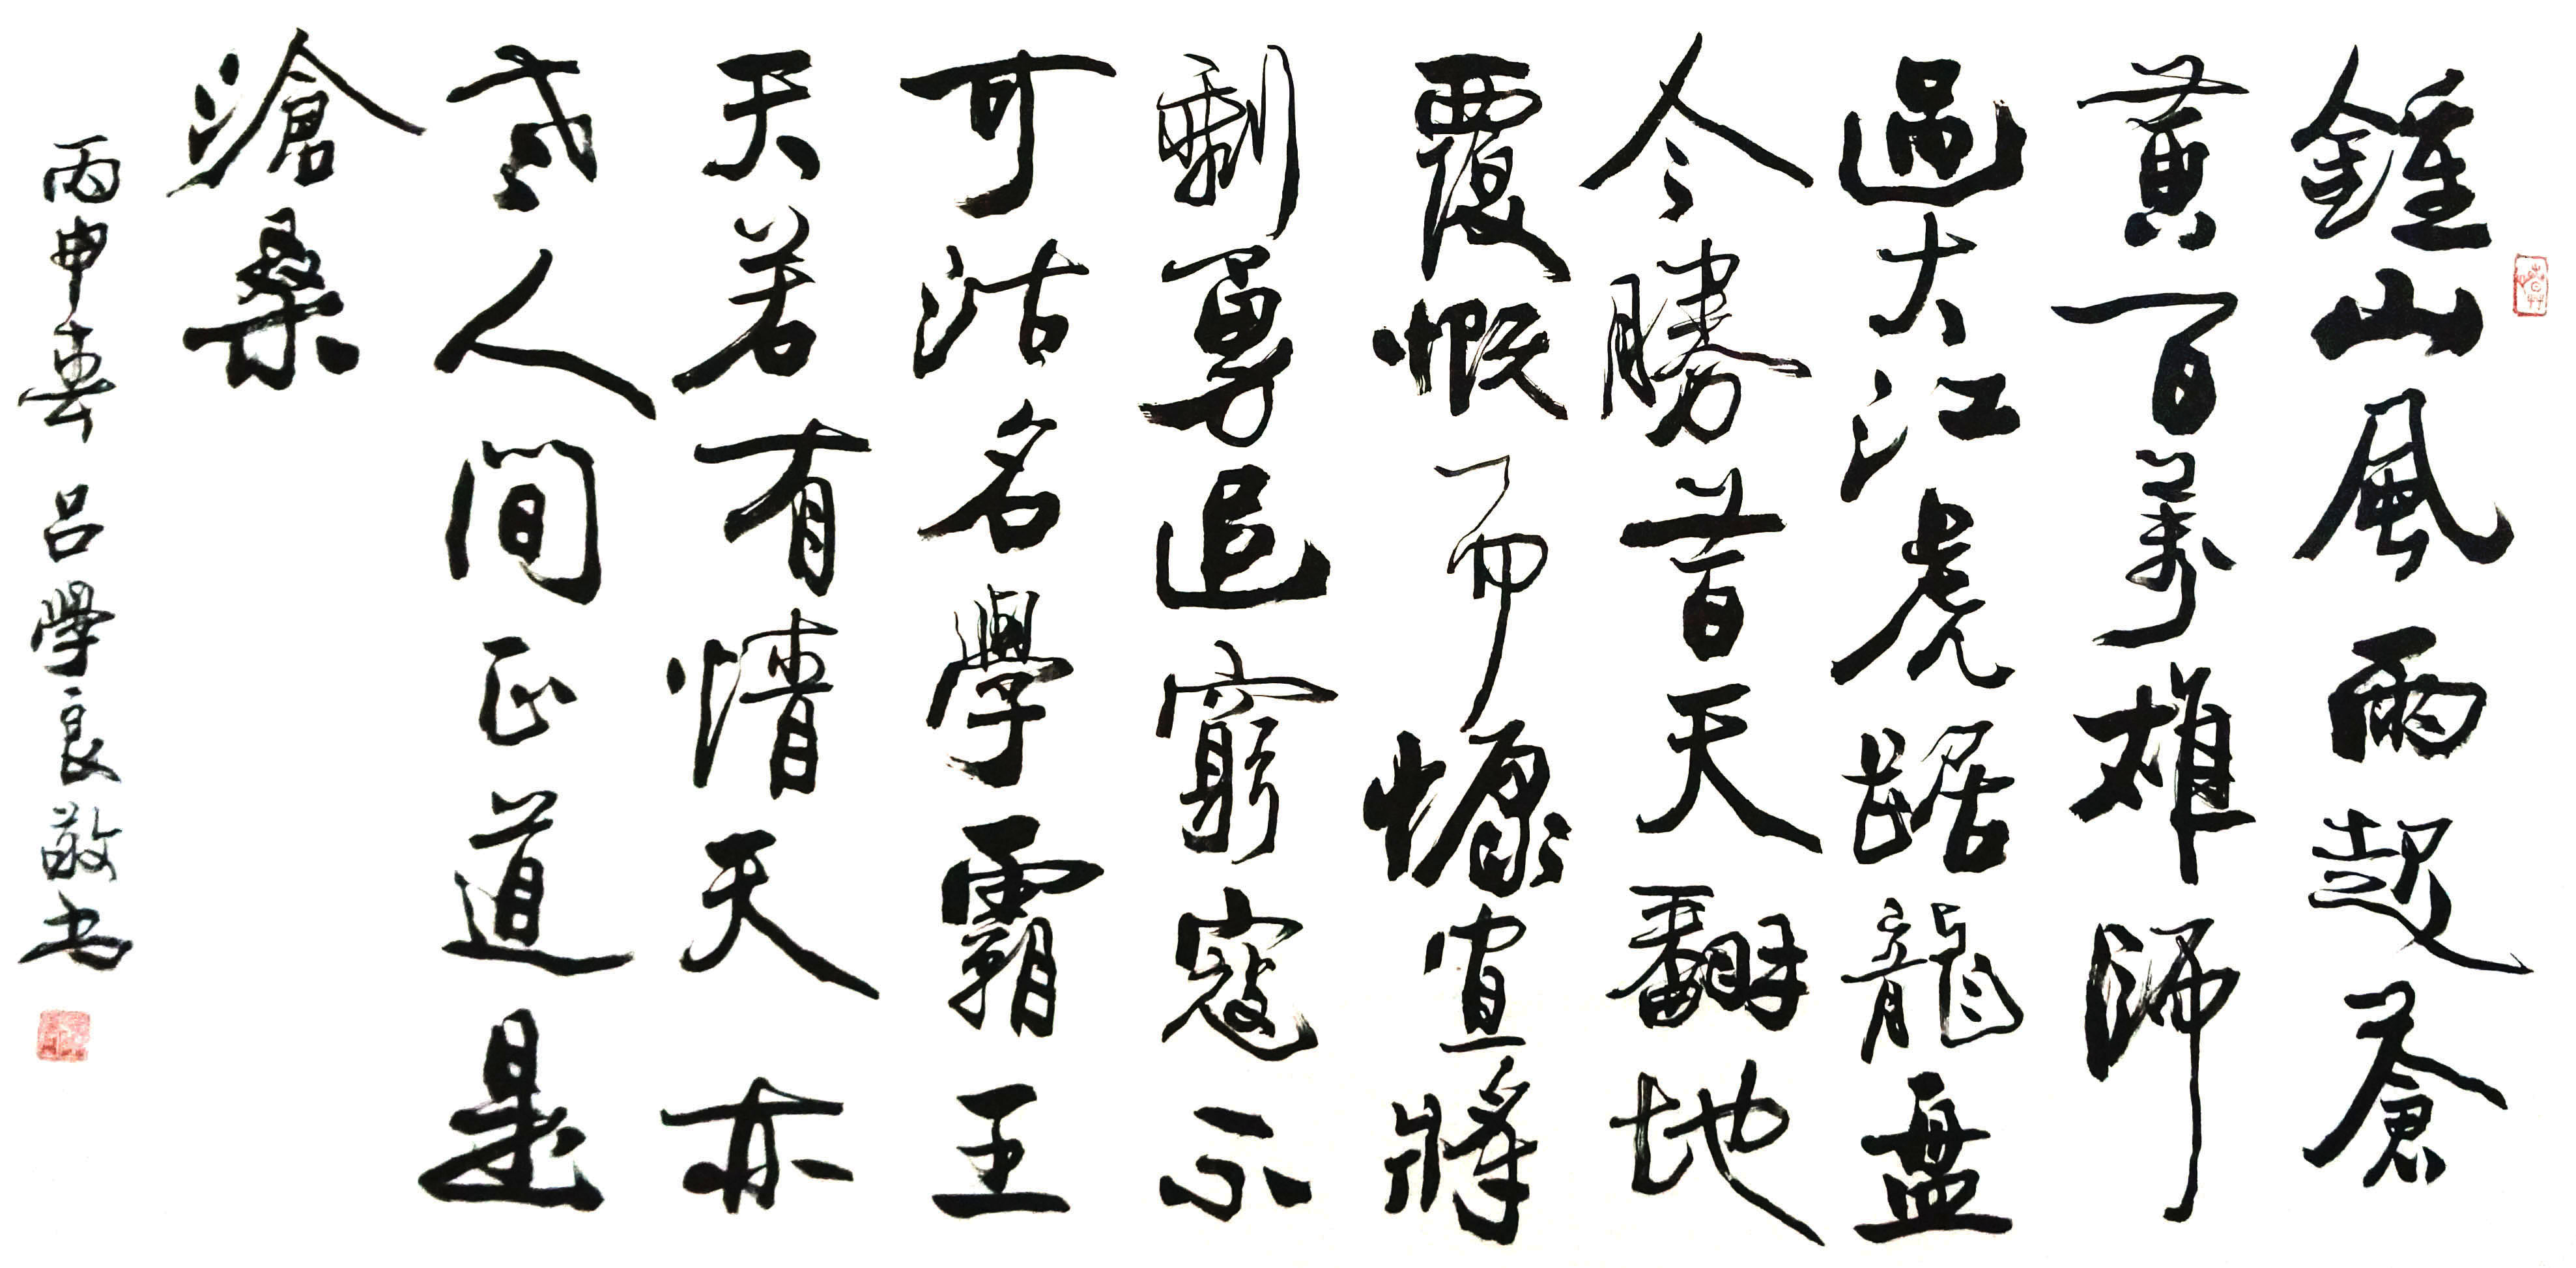 鍾山風雨起蒼
黄百萬雄師
過大江虎踞龍盤
今勝昔天翻地
覆慨而慷宜將
剩勇追窮寇不
可沽名學霸王
天若有情天亦
老人間正道是
滄桑
丙申春 呂學良敬书